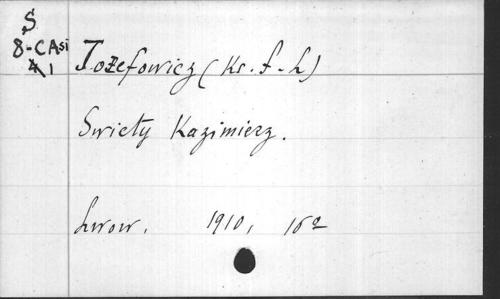 S
8-CAsi
4/1
Jozefowicz (Ks. J.-L)
Swiety Kazimierz.
Lwow. 1910, 16º